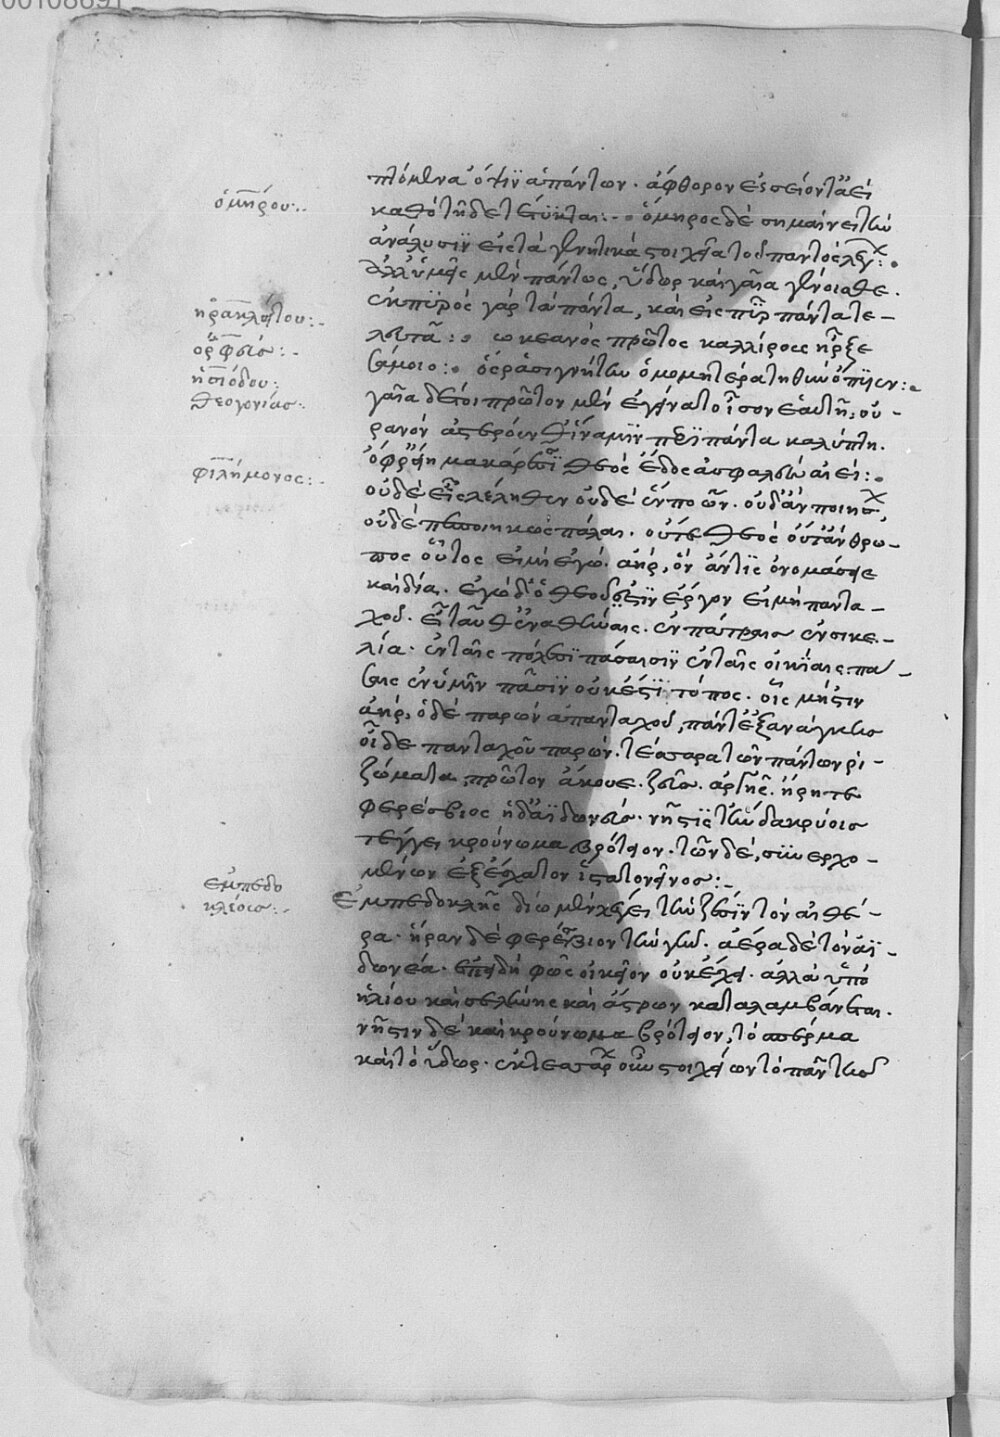 00108691
πτόμενα ὁ τὴν ἁπάντων. ἄφθορον ἐς σειόντα ἀεὶ
ὁμήρου:.
καθὸ τῇδε τέτυκται:-. ὅμηρος δὲ σημαίνει τὴν
ἀνάλυσιν εἰς τὰ γεννητικὰ στοιχεῖα τοῦ παντὸς λέγ:.
ἀλλ' ὑμεῖς μὲν πάντες, ὕδωρ καὶ γαῖα γένοισθε.
ἐκ πυρὸς γὰρ τὰ πάντα, καὶ εἰς πῦρ πάντα τε-
ἡρακλείτου:-
λευτᾶ:. ὠκεανὸς πρῶτος καλλίροος ἦρξε
ὀρφέως:-
γάμοιο:. ὅς ῥα κασιγνήτην ὁμομητέρα τηθὺν ὄπυιεν:.
ἡσιόδου:
θεογονίας
γαῖα δέ τοι πρῶτον μὲν ἐγείνατο ἶσον ἑαυτῇ, οὐ-
ρανὸν ἀστερόενθ' ἵνα μιν περὶ πάντα καλύπτῃ.
ὄφρ' εἴη μακάρεσσι θεοῖς ἕδος ἀσφαλὲς αἰεί:.
φιλήμονος:-
οὐδὲ εἷς λέληθεν οὐδὲ ἓν ποιῶν. οὐδ' ἂν ποιήσ
οὐδὲ πεποιηκὼς πάλαι. οὔτε θεὸς οὔτ' ἄνθρω-
πος οὗτος εἰμὶ ἐγώ. ἀήρ, ὃν ἄν τις ὀνομάσειε
καὶ δία. ἐγὼ δ' ὃ θεοῦ ἐστιν ἔργον εἰμὶ παντα-
χοῦ. ἐνταῦθ' ἐν ἀθήναις. ἐν πάτραις ἐν σικε-
λίᾳ. ἐν ταῖς πόλεσι πάσαισιν ἐν ταῖς οἰκίαις πά-
σαις ἐν ὑμῖν πᾶσιν οὐκ ἔστι τόπος. οὗ μή ἐστιν
ἀήρ, ὁ δὲ παρὼν ἁπανταχοῦ, πάντ' ἐξ ἀνάγκης
οἶδε πανταχοῦ παρών. τέσσαρα τῶν πάντων ῥι-
ζώματα πρῶτον ἄκουε. ζεὺς ἀργής. ἥρη τε
φερέσβιος ἠδ' ἀϊδωνεύς. νῆστίς τὴν δακρύοις
τέγγει κρούνωμα βρότειον. τῶν δὲ, συνερχο-
μένων ἐξ ἔσχατον ἵστατο νεῖκος:-
ἐμπεδο
κλέους:-
Ἐμπεδοκλῆς διὸ μὲν λέγει τὴν ζέσιν τὸν αἰθέ-
ρα. ἥραν δὲ φερέσβιον τὴν γῆν. ἀέρα δὲ τὸν ἀϊ-
δωνέα. ἐπειδὴ φῶς οἰκεῖον οὐκ ἔχει. ἀλλὰ ὑπὸ
ἡλίου καὶ σελήνης καὶ ἄστρων καταλαμβάνεται.
νῆστιν δὲ καὶ κρούνωμα βρότειον, τὸ σπέρμα
καὶ τὸ ὕδωρ. ἐκ τεσσάρ οὖν στοιχείων τὸ πᾶν τῆς